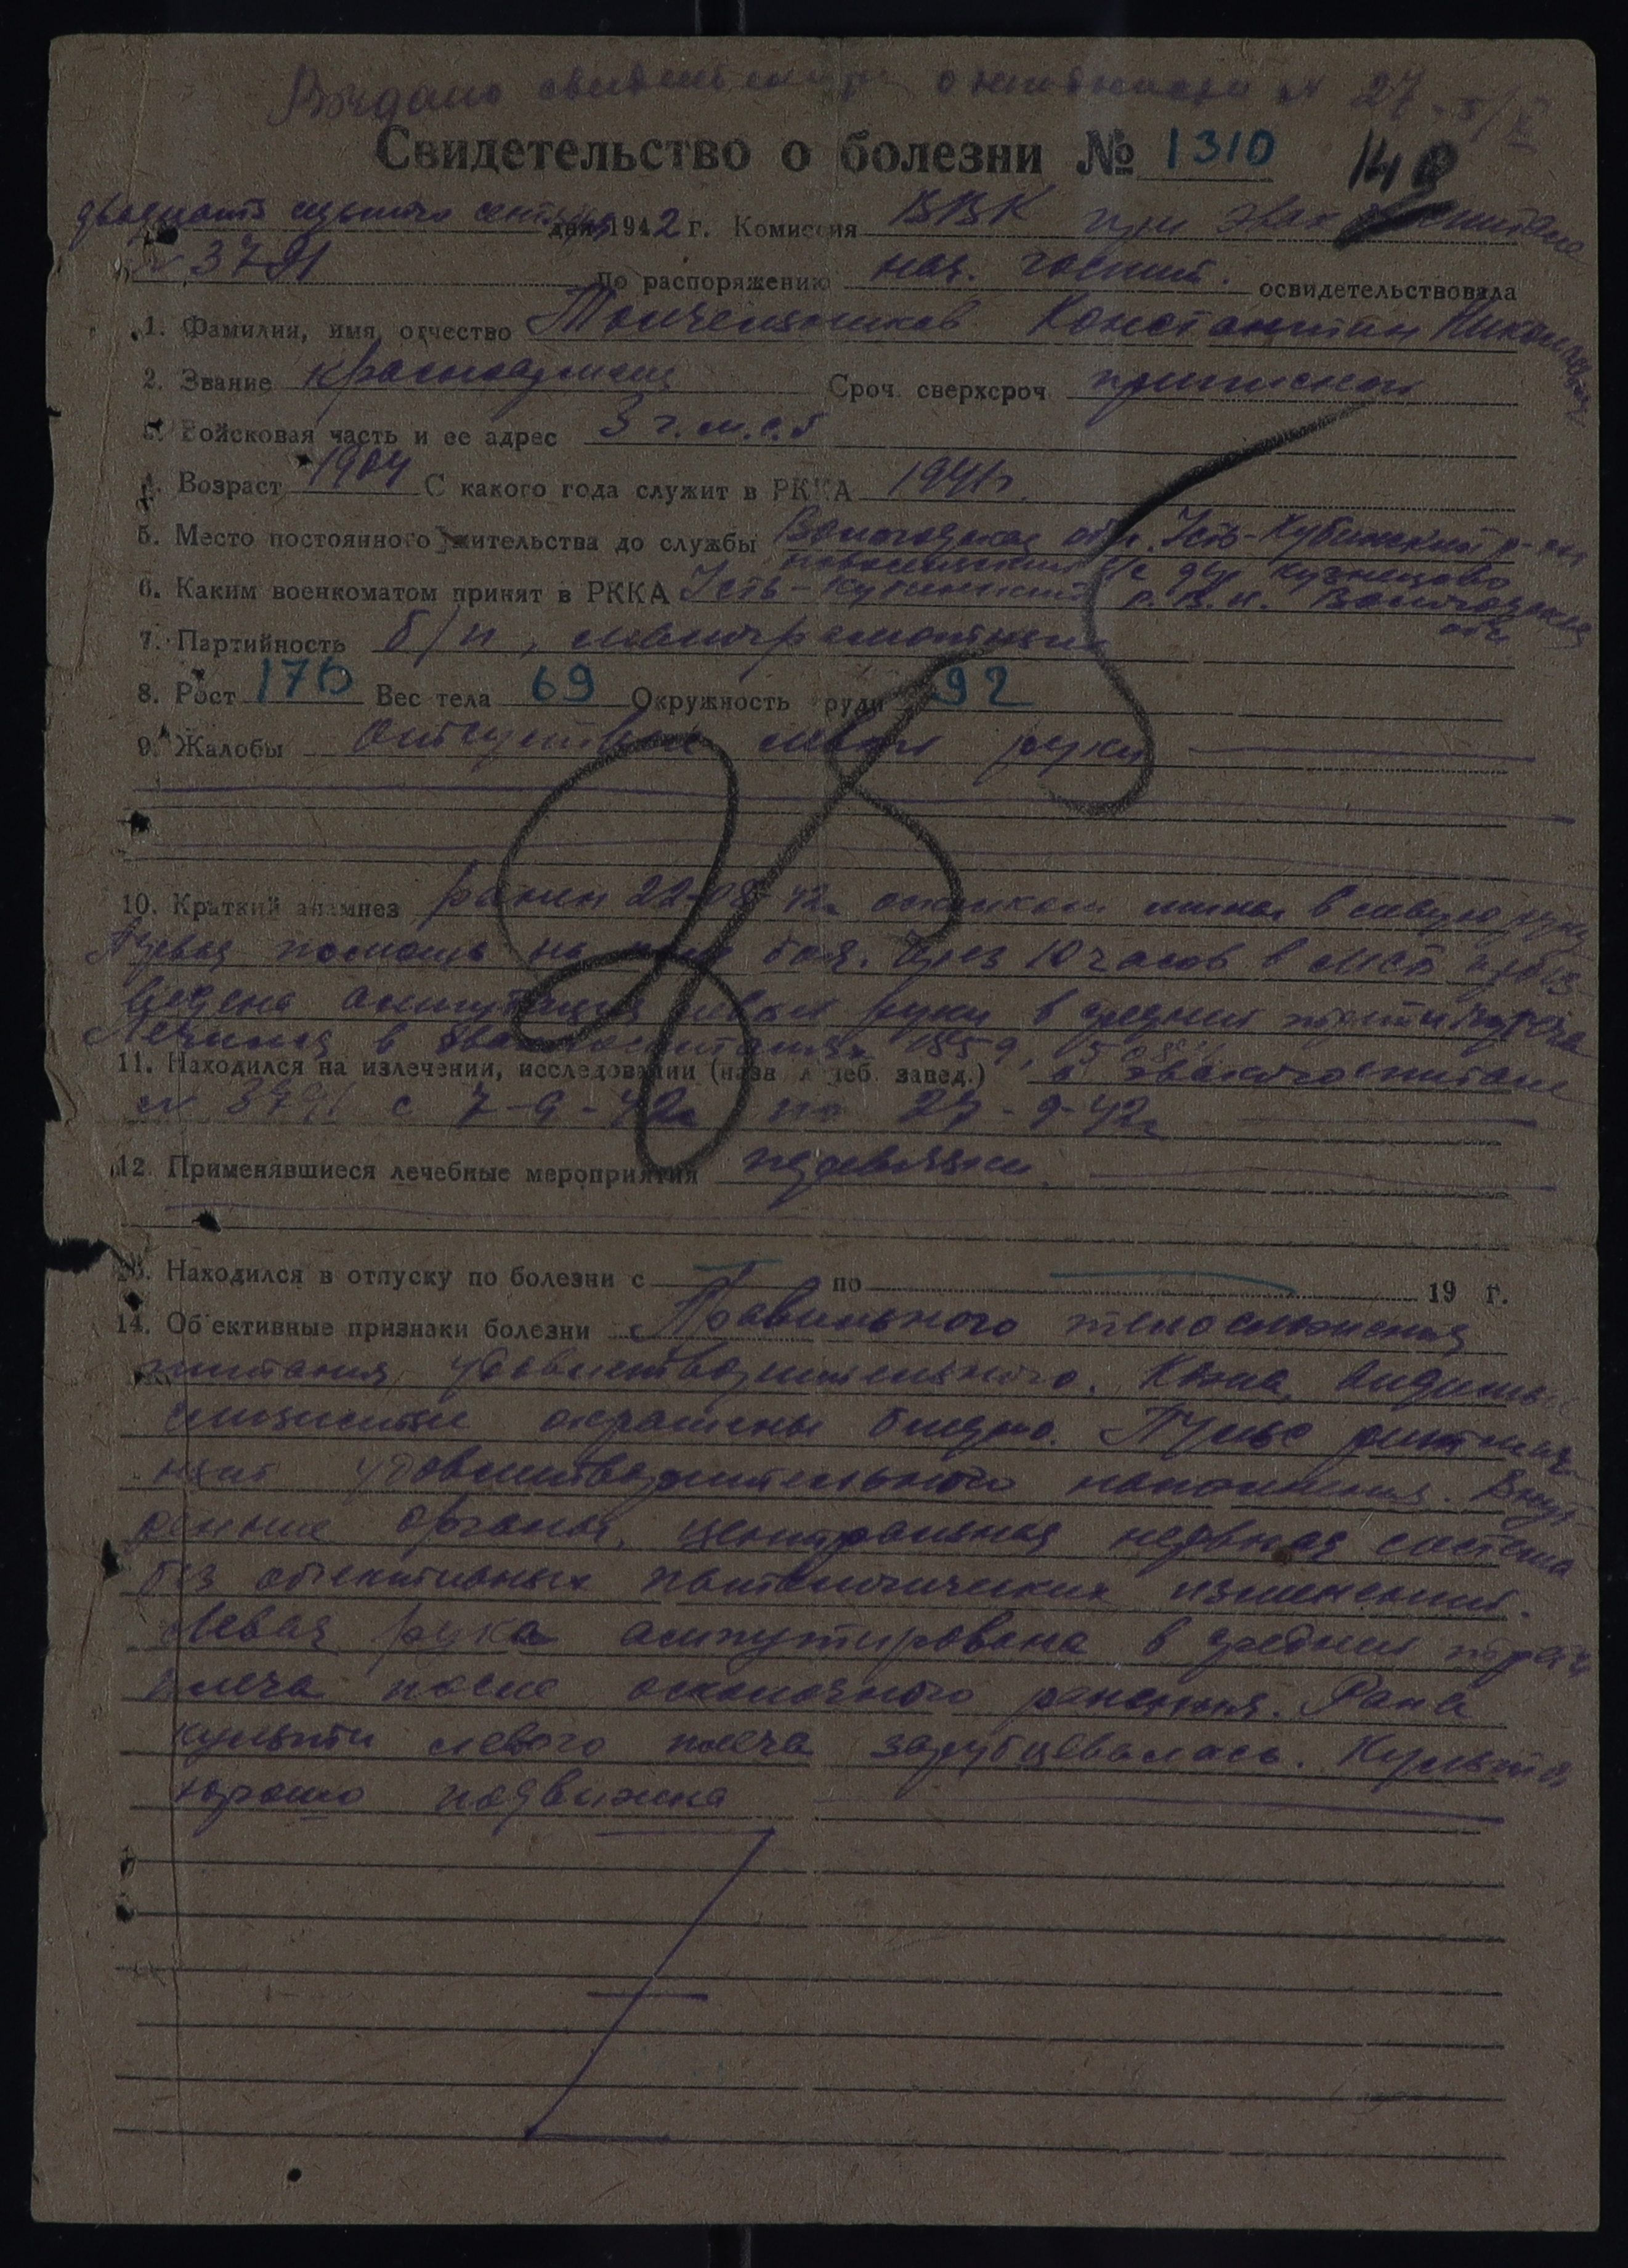 Выдано свидетельство о
Свидетельство о болезни № 1310
140
двадцать седьмого сентября дня 1942 г. Комиссия ВВК при эвакогоспитале
№ 3791 по распоряжению нач. госпит. освидетельствовала
1. Фамилия, имя, отчество Константин Николаевич
2. Звание красноармеец Сроч. сверхсроч. приписной
3. Войсковая часть и ее адрес 3 г.м.с.б
4. Возраст 1904 С какого года служит в РККА 1941г.
5. Место постоянного жительства до службы Вологодская обл. Усть-Кубинский р-он
с/с дер Кузнецово
6. Каким военкоматом принят в РККА Усть-Кубинский Р.В.К. Вологодской
обл
7. Партийность б/п, малограмотный
8. Рост 170 Вес тела 69 Окружность груди 92
9. Жалобы Отсутствие левой руки
10. Краткий анамнез ранен 22-08-42г осколком мины в левую руку
Первая помощь на поле боя. Через 10 часов в МСБ произ-
ведена ампутация левой руки в средней трети плеча
Лечился в эвакогоспиталях 1859,
11. Находился на излечении, исследовании (назв. лечеб. завед.) в эвакогоспитале
№ 3791 с 7-9-42г по 27-9-42г
12. Применявшиеся лечебные мероприятия перевязки
13. Находился в отпуску по болезни с по 19 г.
14. Об'ективные признаки болезни Правильного телосложения
питания удовлетворительного. Кожа, видимые
слизистые окрашены бледно. Пульс ритмич-
ный удовлетворительного наполнения. Внут-
ренние органы, центральная нервная система
без объективных патологических изменений.
Левая рука ампутирована в средней трети
плеча после осколочного ранения. Рана
культи левого плеча зарубцевалась. Культя
хорошо подвижна